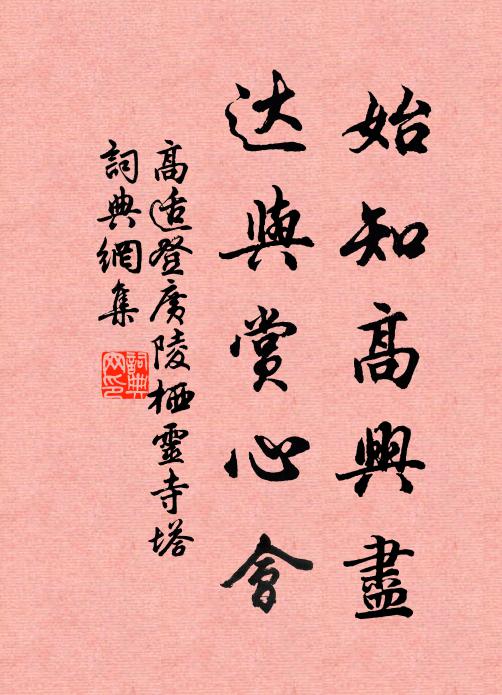 始知高興盡
达與賞心會
高适登廣陵栖靈寺塔
詞典網集
詞典网印